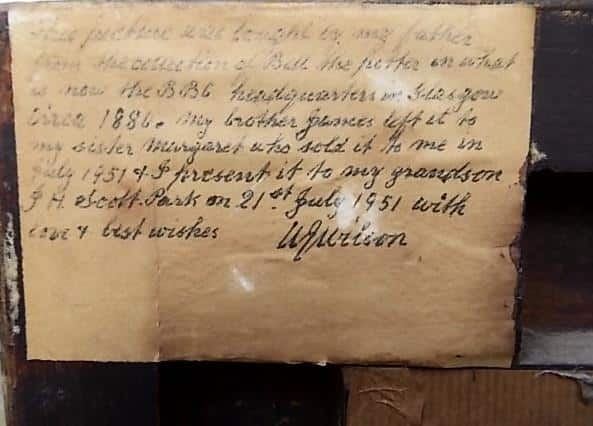 This picture was bought by my father
from the collection of Bell the potter in what
is now the BBC headquarters in Glasgow
circa 1886. My brother James left it to
my sister Margaret who sold it to me in
July 1951 & I present it to my grandson
J H. Scott Park on 21st July 1951 with
love & best wishes Wilson